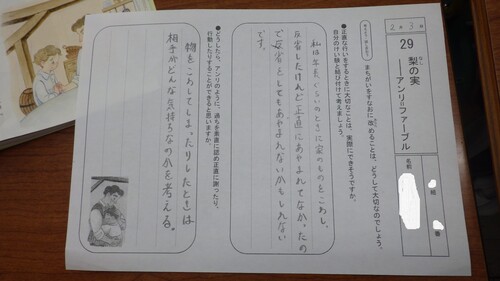 29 梨の実
なし
――アンリ=ファーブル
2年3組
組
番
名前
まちがいをすなおに改めることは、どうして大切なのでしょう。
●正直な行いをするときに大切なことは、実際にできそうですか。
自分のけい験と結び付けて考えましょう。
私は年長くらいのときに家のものをこわし、
反省したけれど正直にあやまれてなかったの
で反省としてもあやまれないかもしれない
です。
●どうしたら、アンリのように、過ちを素直に認め正直に謝ったり、
行動したりすることができると思いますか。
物をこわしてしまったりしたときは
相手がどんな気持ちなのかを考える。